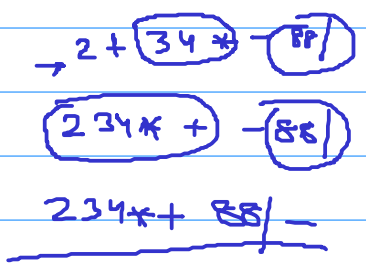 → 2 + 34* - 88/
234* + - 88/
234*+ 88/ -